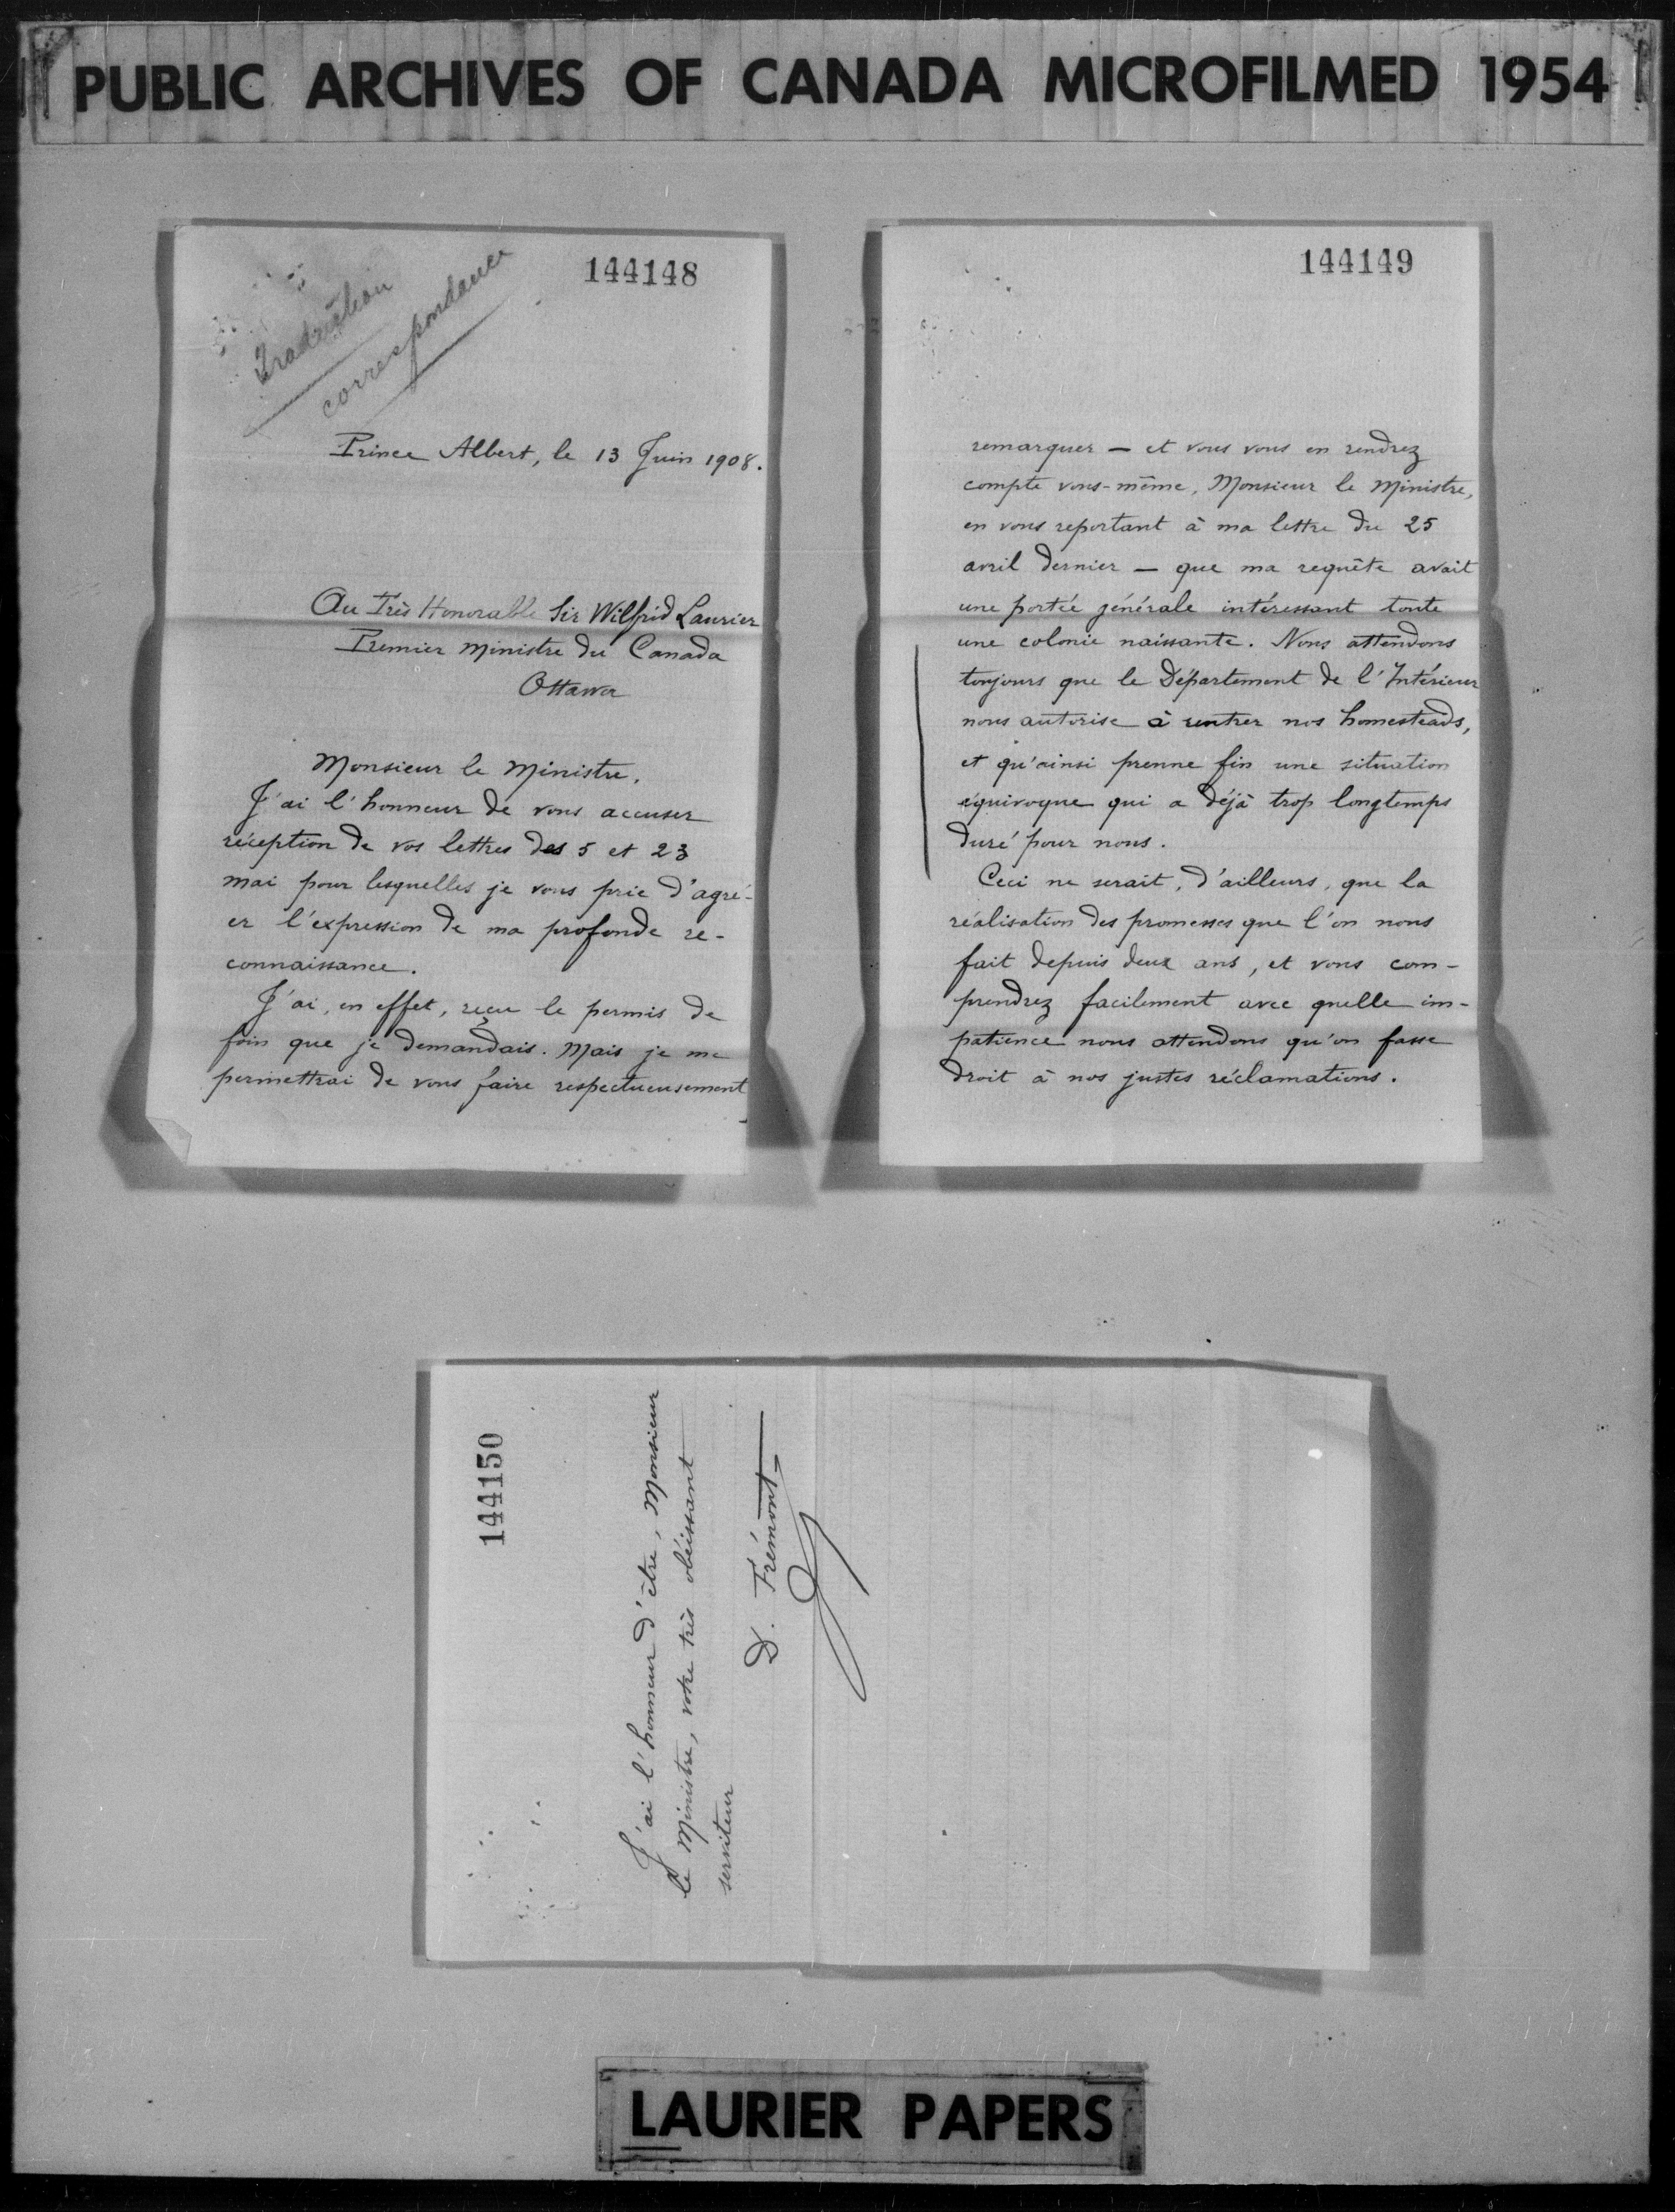 PUBLIC ARCHIVES OF CANADA MICROFILMED 1954
144148
Traduction
correspondance
Prince Albert, le 13 Juin 1908.
Au Très Honorable Sir Wilfrid Laurier
Premier Ministre du Canada
Ottawa
Monsieur le Ministre,
J'ai l'honneur de vous accuser
réception de vos lettres des 5 et 23
mai pour lesquelles je vous prie d'agré-
er l'expression de ma profonde re-
connaissance.
J'ai, en effet, reçu le permis de
foin que je demandais. Mais je me
permettrai de vous faire respectueusement
144149
remarquer — et vous vous en rendrez
compte vous-même, Monsieur le Ministre,
en vous reportant à ma lettre du 25
avril dernier — que ma requête avait
une portée générale intéressant toute
une colonie naissante. Nous attendons
toujours que le Département de l'Intérieur
nous autorise à rentrer nos homesteads,
et qu'ainsi prenne fin une situation
équivoque qui a déjà trop longtemps
duré pour nous.
Ceci ne serait, d'ailleurs, que la
réalisation des promesses que l'on nous
fait depuis deux ans, et vous com-
prendrez facilement avec quelle im-
patience nous attendons qu'on fasse
droit à nos justes réclamations.
144150
J'ai l'honneur d'être, Monsieur
le Ministre, votre très obéissant
serviteur
D. Frémont
LAURIER PAPERS